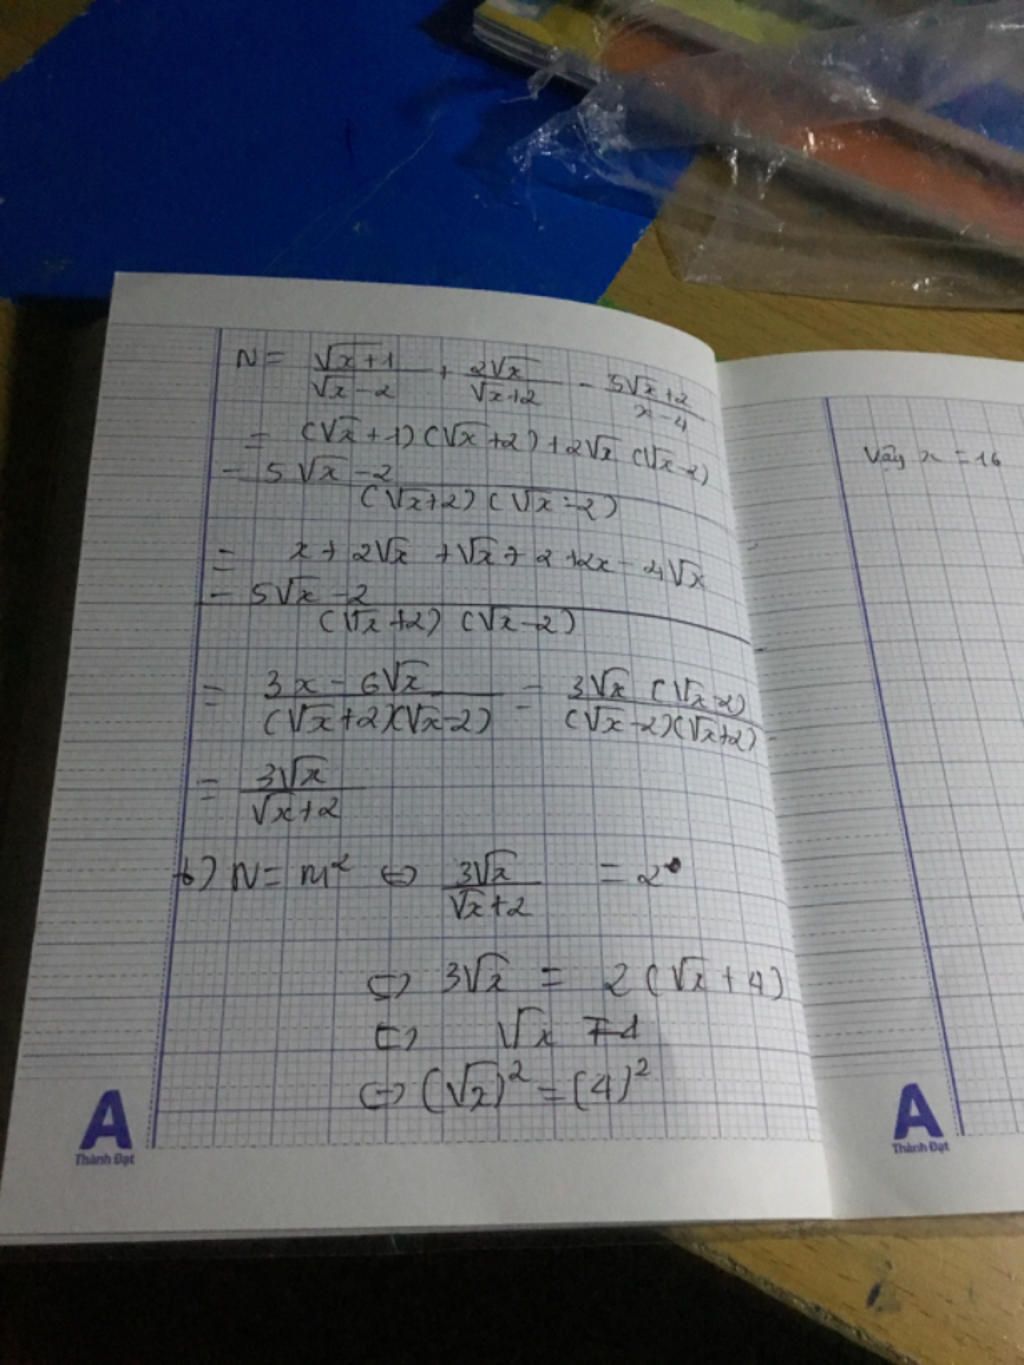 N = √x+1/√x-2 + 2√x/√x+2 - 5√x+2/x-4
= (√x+1)(√x+2)+2√x(√x-2)
- 5√x-2
(√x+2)(√x-2)
= x+2√x+√x+2+2x-4√x
- 5√x-2
(√x+2)(√x-2)
= 3x-6√x/(√x+2)(√x-2) = 3√x(√x-2)/(√x-2)(√x+2)
= 3√x/√x+2
b) N = m² ⇔ 3√x/√x+2 = 2
⇔ 3√x = 2(√x+4)
⇔ √x = 4
⇔ (√x)² = (4)²
Vậy x = 16
A
Thành Đạt
A
Thành Đạt